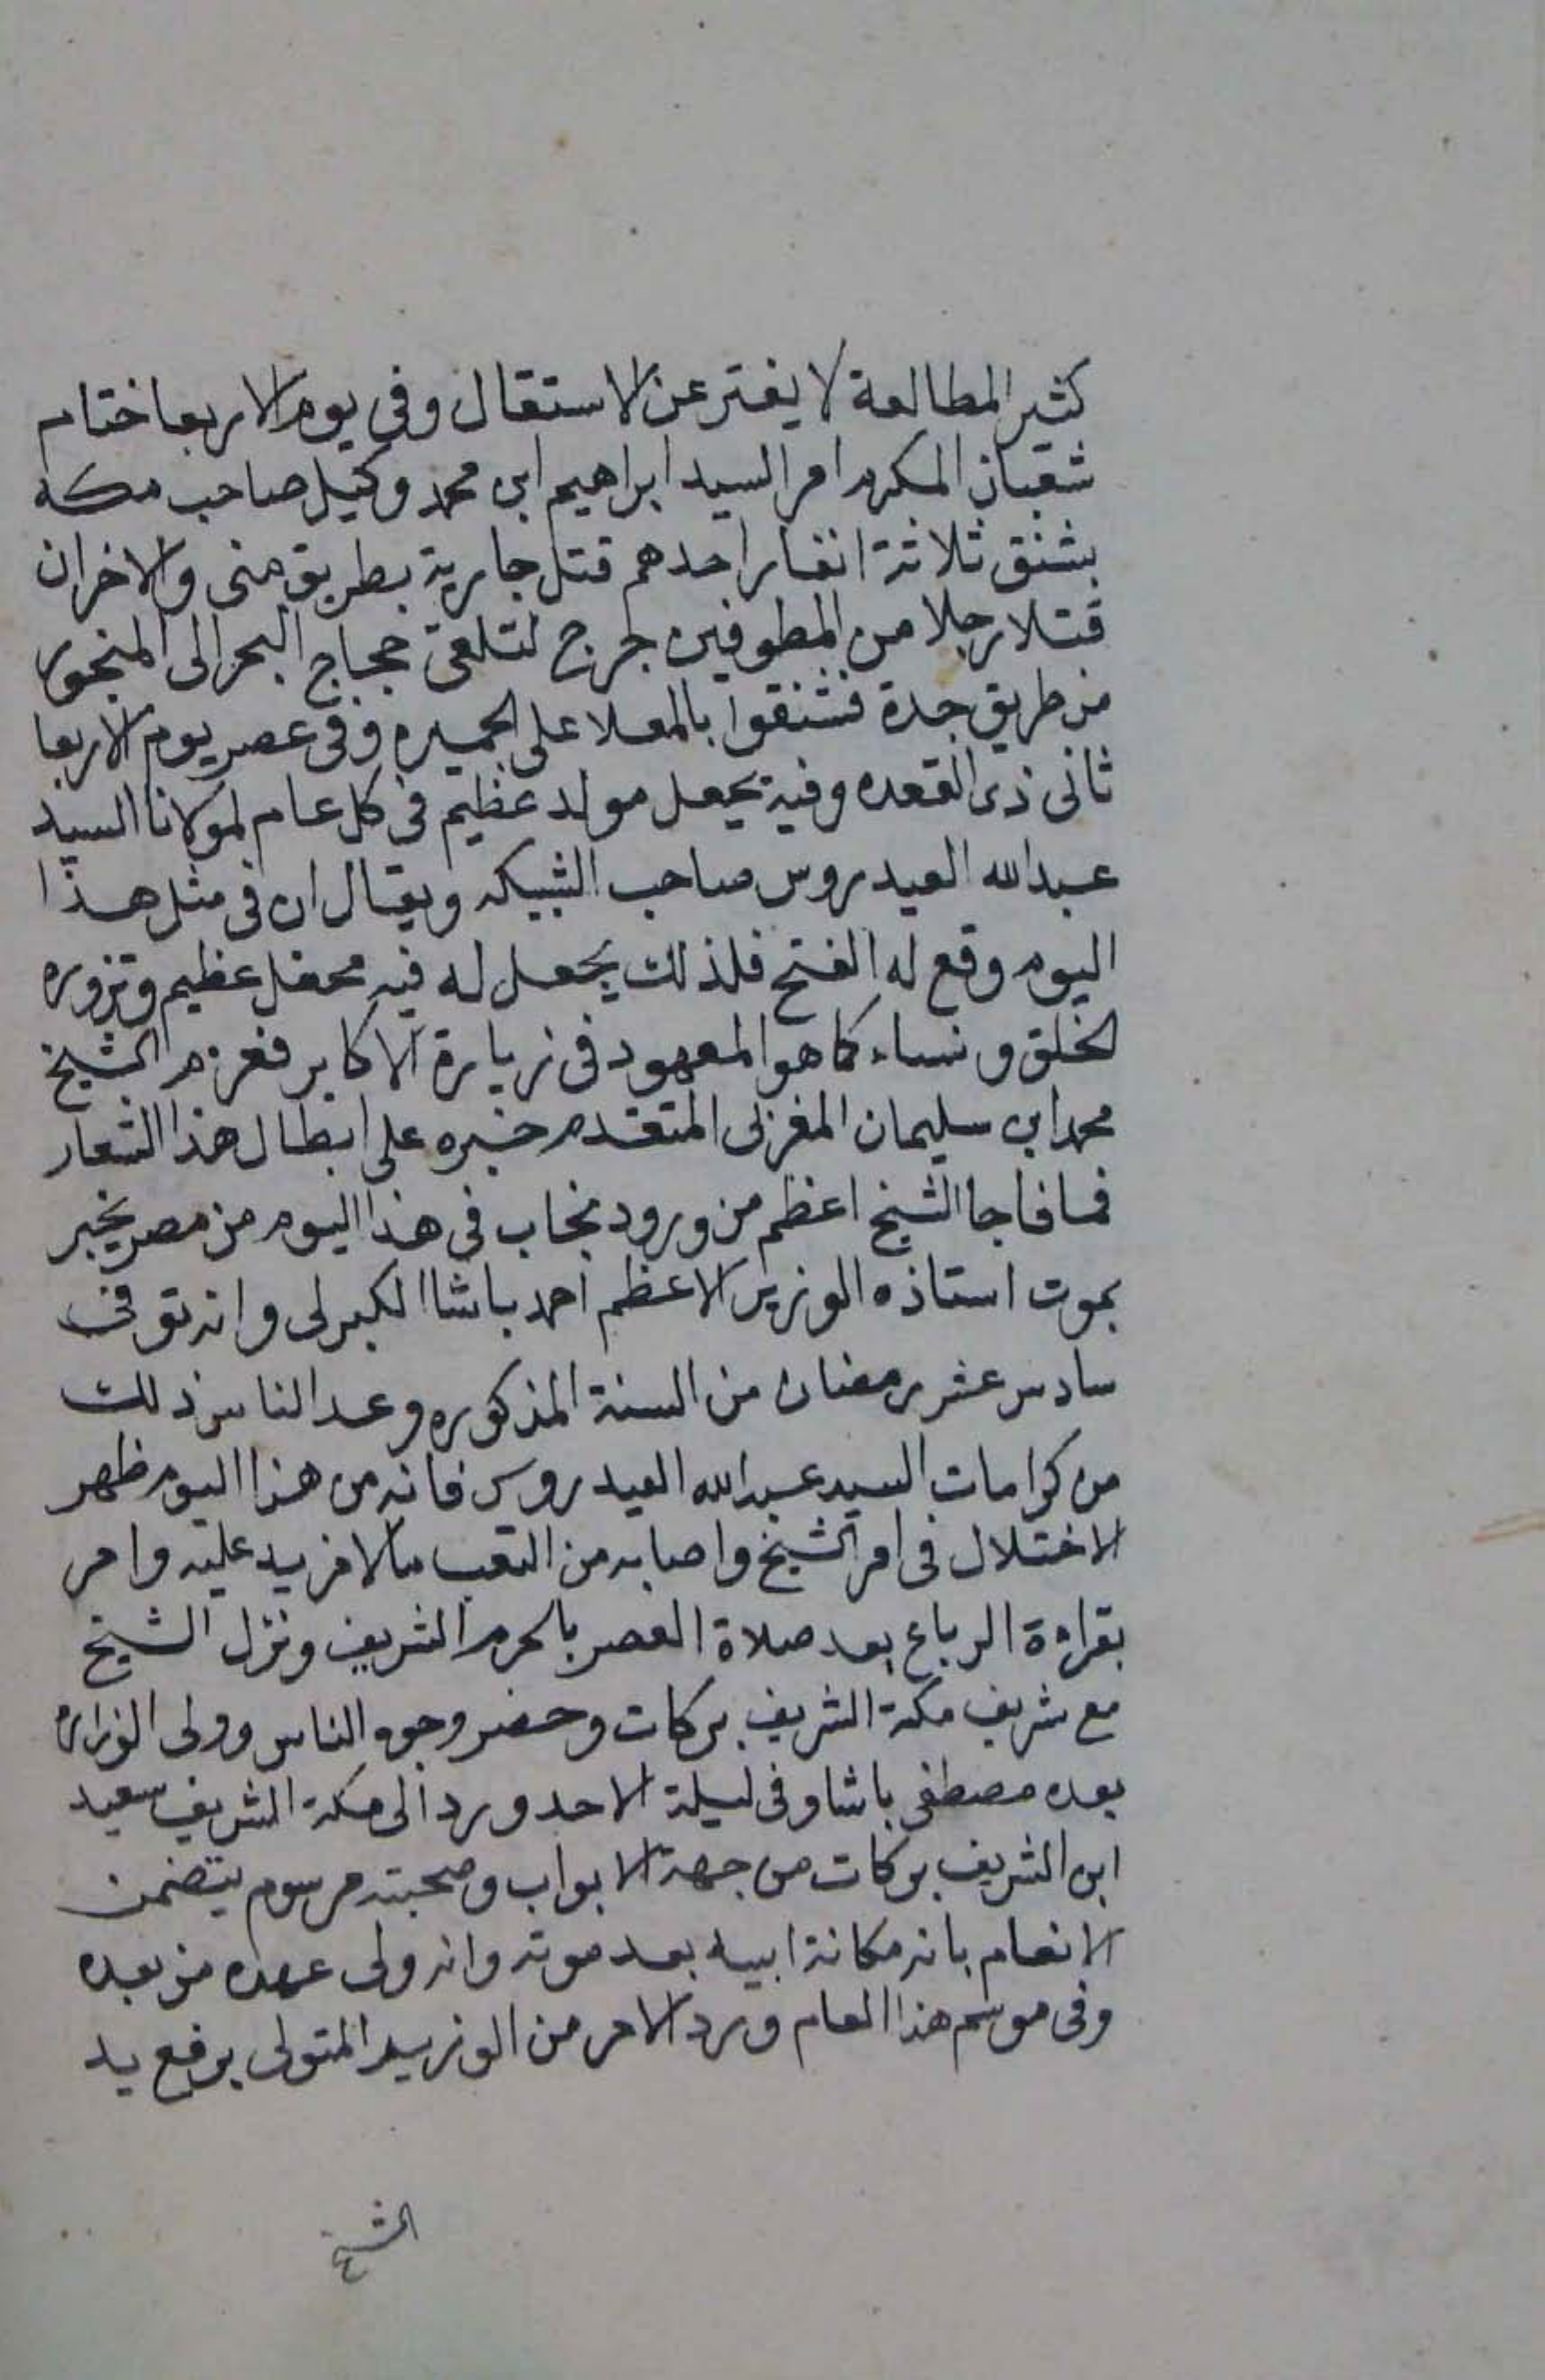 كثير المطالعة لا يفتر عن الاستقال وفي يوم الاربعا ختام
شعبان المكرم امر السيد ابراهيم ابن محمد وكيل صاحب مكة
بشنق ثلاثة انفار احدهم قتل جارية بطريق منى والاخران
قتلا رجلا من المطوفين خرج لتلقى حجاج البحر الى المنجور
من طريق جدة فشنقوا بالمعلا على الجميره وفى عصر يوم الاربعا
ثانى ذى القعده وفيه يجعل مولد عظيم فى كل عام لمولانا السيد
عبدالله العيدروس صاحب الشبيكه ويقال ان فى مثل هذا
اليوم وقع له الفتح فلذلك يجعل له فيه محفل عظيم وتزوره
الخلق ونساء كما هو المعهود فى زيارة الاكابر فعزم الشيخ
محمد ابن سليمان المغربى المتقدم خبره على ابطال هذا الشعار
فما فاجا الشيخ اعظم من ورود نجاب فى هذا اليوم من مصر يخبر
بموت استاذه الوزير الاعظم احمد باشا الكبرلى وانه توفى
سادس عشر رمضان من السنة المذكوره وعد الناس ذلك
من كرامات السيد عبدالله العيدروس فانه من هذا اليوم ظهر
الاختلال فى امر الشيخ واصابه من التعب مالا مزيد عليه وامر
بقراءة الرباع بعد صلاة العصر بالحرم الشريف ونزل الشيخ
مع شريف مكة الشريف بركات وحضر وجوه الناس وولى الوزاره
بعده مصطفى باشا وفى ليلة الاحد ورد الى مكة الشريف سعيد
ابن الشريف بركات من جهة الابواب وصحبته مرسوم يتضمن
الانعام بانه مكانة ابيه بعد موته وانه ولى عهده من بعده
وفى موسم هذا العام ورد الامر من الوزير المتولى برفع يد
الشيخ